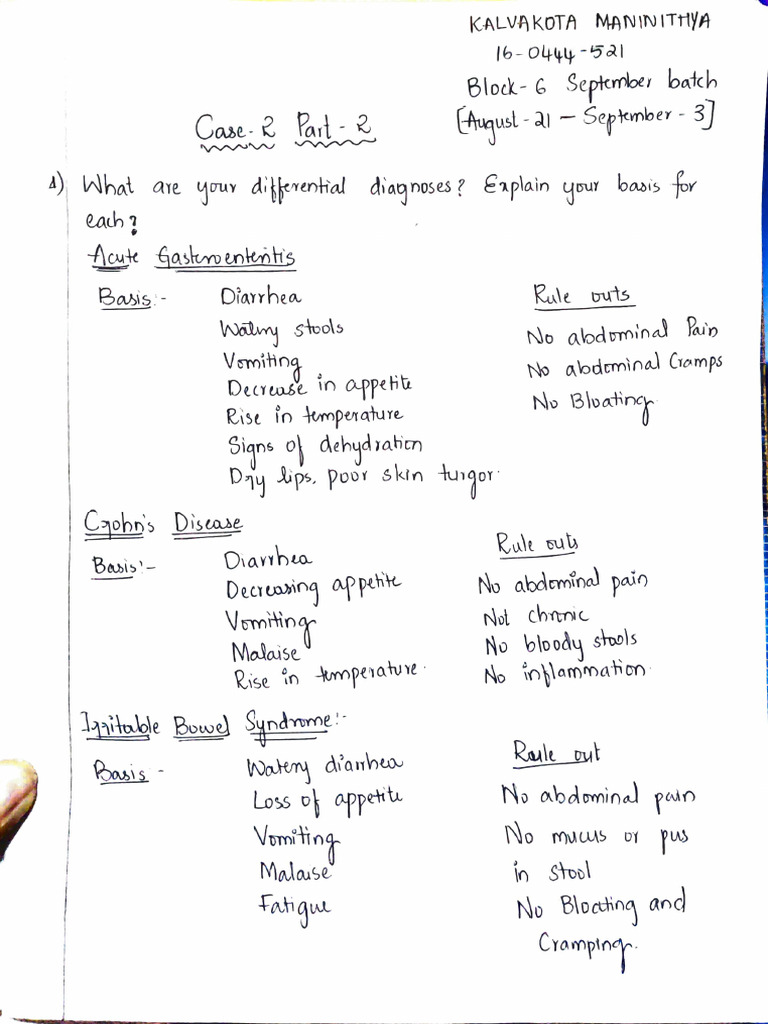 KALVAKOTA MANINITHYA
16-0444-521
Block-6 September batch
[August-21 — September-3]
Case-2 Part-2
1) What are your differential diagnoses? Explain your basis for
each?
Acute Gastroenteritis
Basis:- Diarrhea Rule outs
Watery stools No abdominal Pain
Vomiting No abdominal Cramps
Decrease in appetite No Bloating.
Rise in temperature
Signs of dehydration
Dry lips, poor skin turgor.
Crohn's Disease
Basis:- Diarrhea Rule outs
Decreasing appetite No abdominal pain
Vomiting Not chronic
Malaise No bloody stools
Rise in temperature. No inflammation.
Irritable Bowel Syndrome:-
Basis - Watery diarrhea Rule out
Loss of appetite No abdominal pain
Vomiting No mucus or pus
Malaise in stool
Fatigue No Bloating and
Cramping.